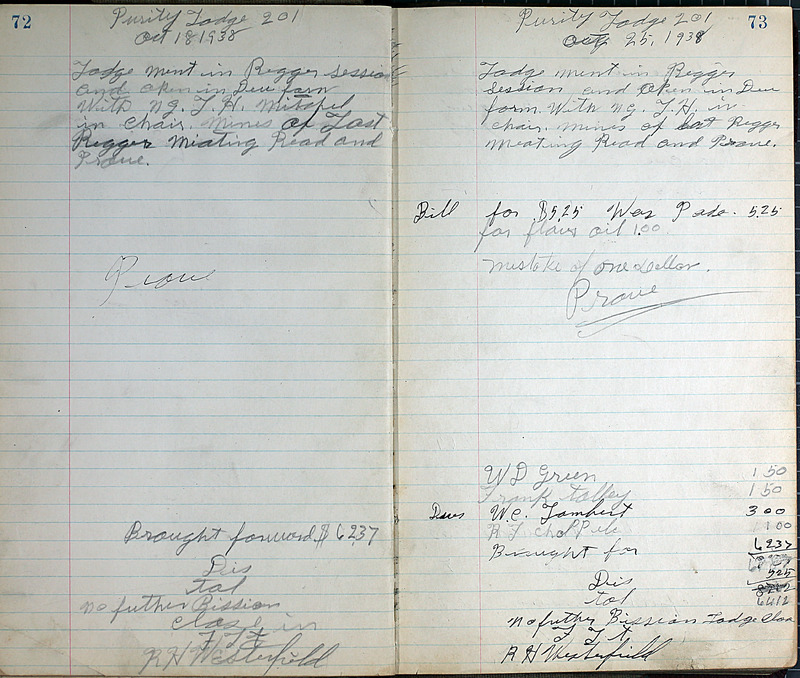 72
Purity Lodge 201
Oct 18 1938
Lodge ment in Regger session
and oken in Deu farn
With ng. T. H. Mitchel
in chair. Mines of Last
Regger Miating Read and
Prove.
Prove
Brought forward $ 6237
Dis
tol
no futher Bission
cloze in
F L t
R H Westerfield
73
Purity Lodge 201
Oct 25, 1938
Lodge ment in Regger
session and oken in Deu
form. With ng. T. H. in
chair. mines of last Regger
Meating Read and Prove.
Bill for $5.25 Was Pade. 5.25
for flowr oil 1.00
mistake of one dollar.
Prove
W D Green 1 50
Frank Talley 1 50
Dues W. C. Lambert 3 00
1 00
Brought for 6237
525
Dis
tol 6612
no futher Bission Lodge Close
F L t
R H Westerfield